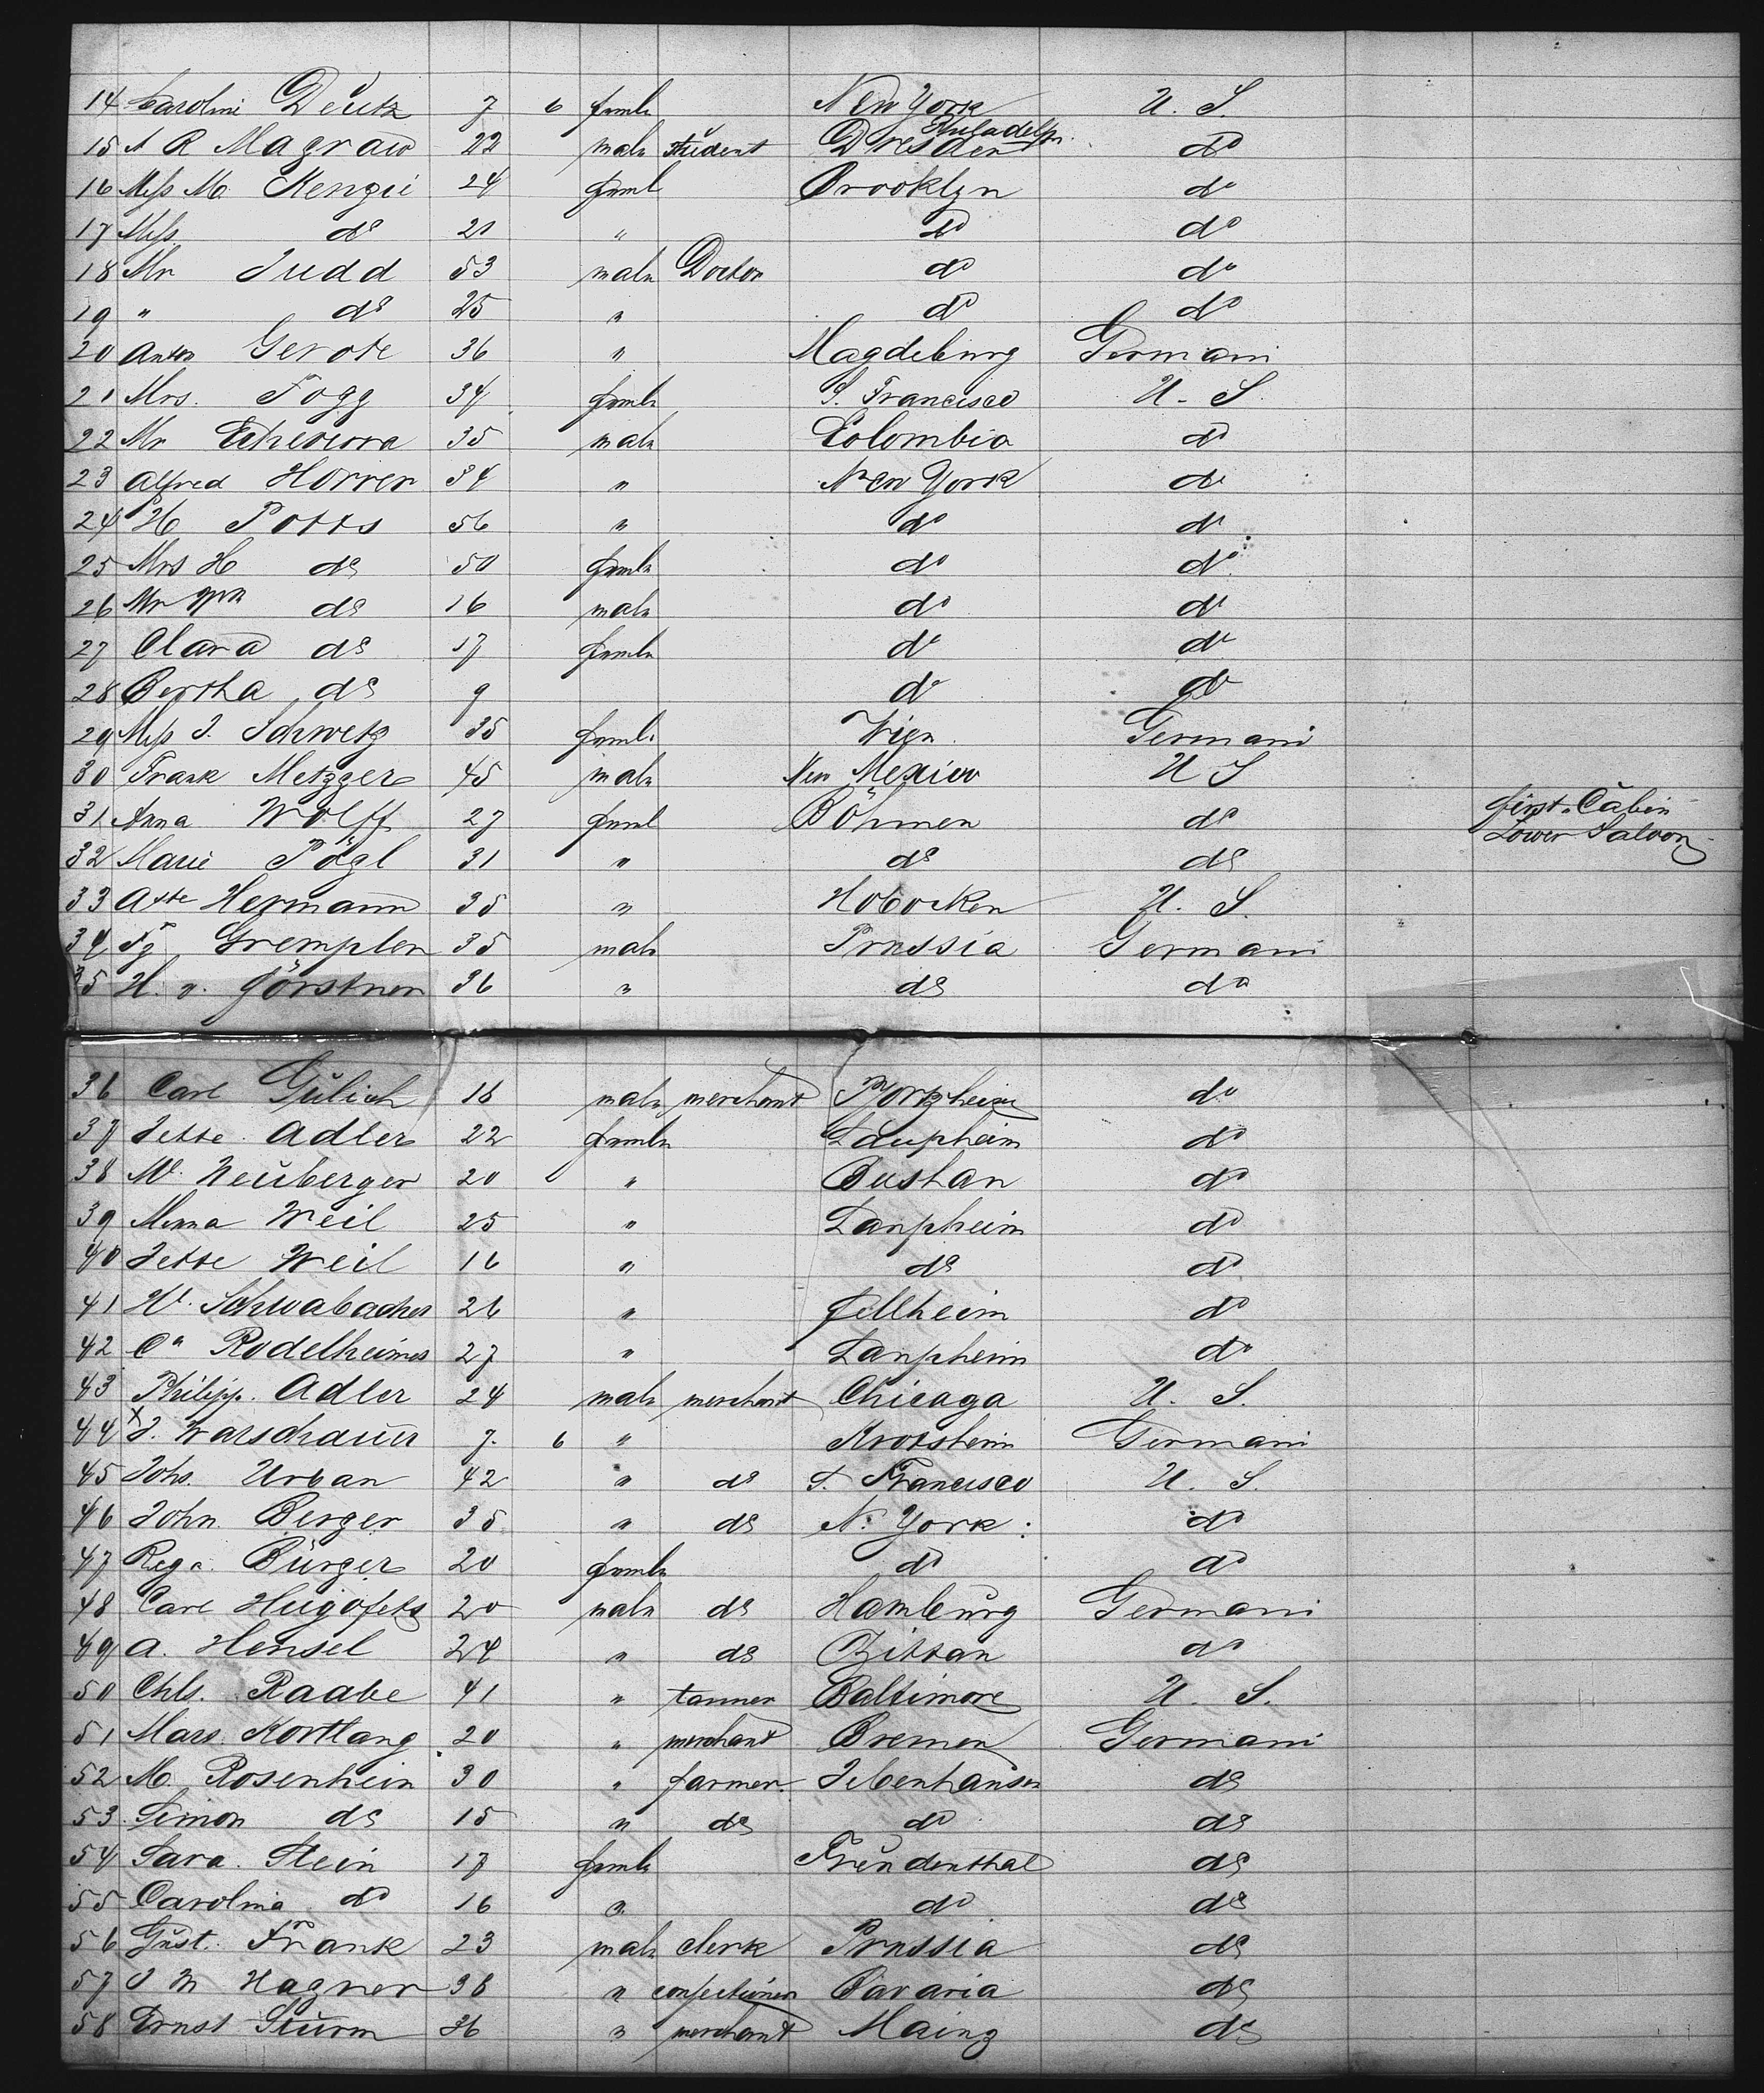 14 Caroline Deutz 7 6 female New York U. S.
Philadelp.
15 A R Magraw 22 male student Dresden do
16 Miss M. Kenzie 24 female Brooklyn do
17 Miss do 21 " do do
18 Mr Judd 53 male Doctor do do
19 " do 25 " do do
20 Anton Gerote 36 " Magdeburg Germani
21 Mrs. Fogg 34 female S. Francisco U. S.
22 Mr Echeverra 35 male Colombia do
23 Alfred Horrer 34 " New York do
24 H Potts 56 " do do
25 Mrs H do 50 female do do
26 Mr do 16 male do do
27 Clara do 17 female do do
28 Bertha do 9 do do
29 Miss J. Schwetz 35 female Wien Germani
30 Frank Metzger 45 male New Mexico U S
31 Anna Wolff 27 female Böhmen do first Cabin
Lower Saloon
32 Marie Pögl 31 " do do
33 Hermann 35 " Hobocken U. S.
34 Fg Gremplen 35 male Prussia Germani
35 H. v. Förstner 36 " do do
36 Carl Gülich 18 male merchant Pforzheim do
37 Jette Adler 22 female Laupheim do
38 M. Neuberger 20 " do
39 Mina Weil 25 " Laupheim do
40 Jette Weil 16 " do do
41 W. Schwabacher 26 " Fellheim do
42 Ca Rodelheimer 27 " Laupheim do
43 Philipp. Adler 24 male merchant Chicaga U. S.
44 x J. Warschauer 7. 6 " Germani
45 Johs. Urban 42 " do S. Francisco U. S.
46 John Berger 35 " do N. York: do
47 Rega. Bürger 20 female do do
48 Carl 20 male do Hamburg Germani
49 A. Hensel 24 " do Zittau do
50 Chls. Raabe 41 " tanner Baltimore U. S.
51 Mars. Kortlang 20 " merchant Bremen Germani
52 M. Rosenhein 30 " farmer Jebenhausen do
53 Simon do 15 " do do do
54 Sara Stein 17 female Freudenthal do
55 Carolina do 16 " do do
56 Gust. Frank 23 male clerk Prussia do
57 J M Hagner 38 " confectioner Bavaria do
58 Ernst Sturm 26 " merchant Mainz do